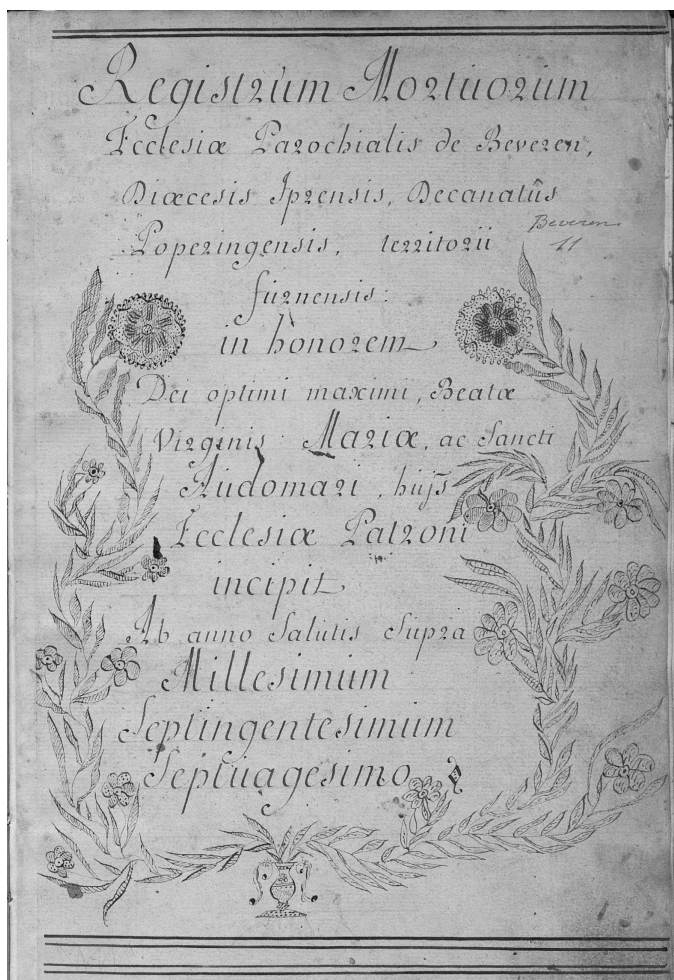 Registrum Mortuorum
Ecclesiæ Parochialis de Beveren,
Diæcesis Iprensis, Decanatûs
Poperingensis, territorii
furnensis:
Beveren
11
in honorem
Dei optimi maximi, Beatæ
Virginis Mariæ, ac Sancti
Audomari, hujs
Ecclesiæ Patroni
incipit
Ab anno Salutis Supra
Millesimum
Septingentesimum
Septuagesimo